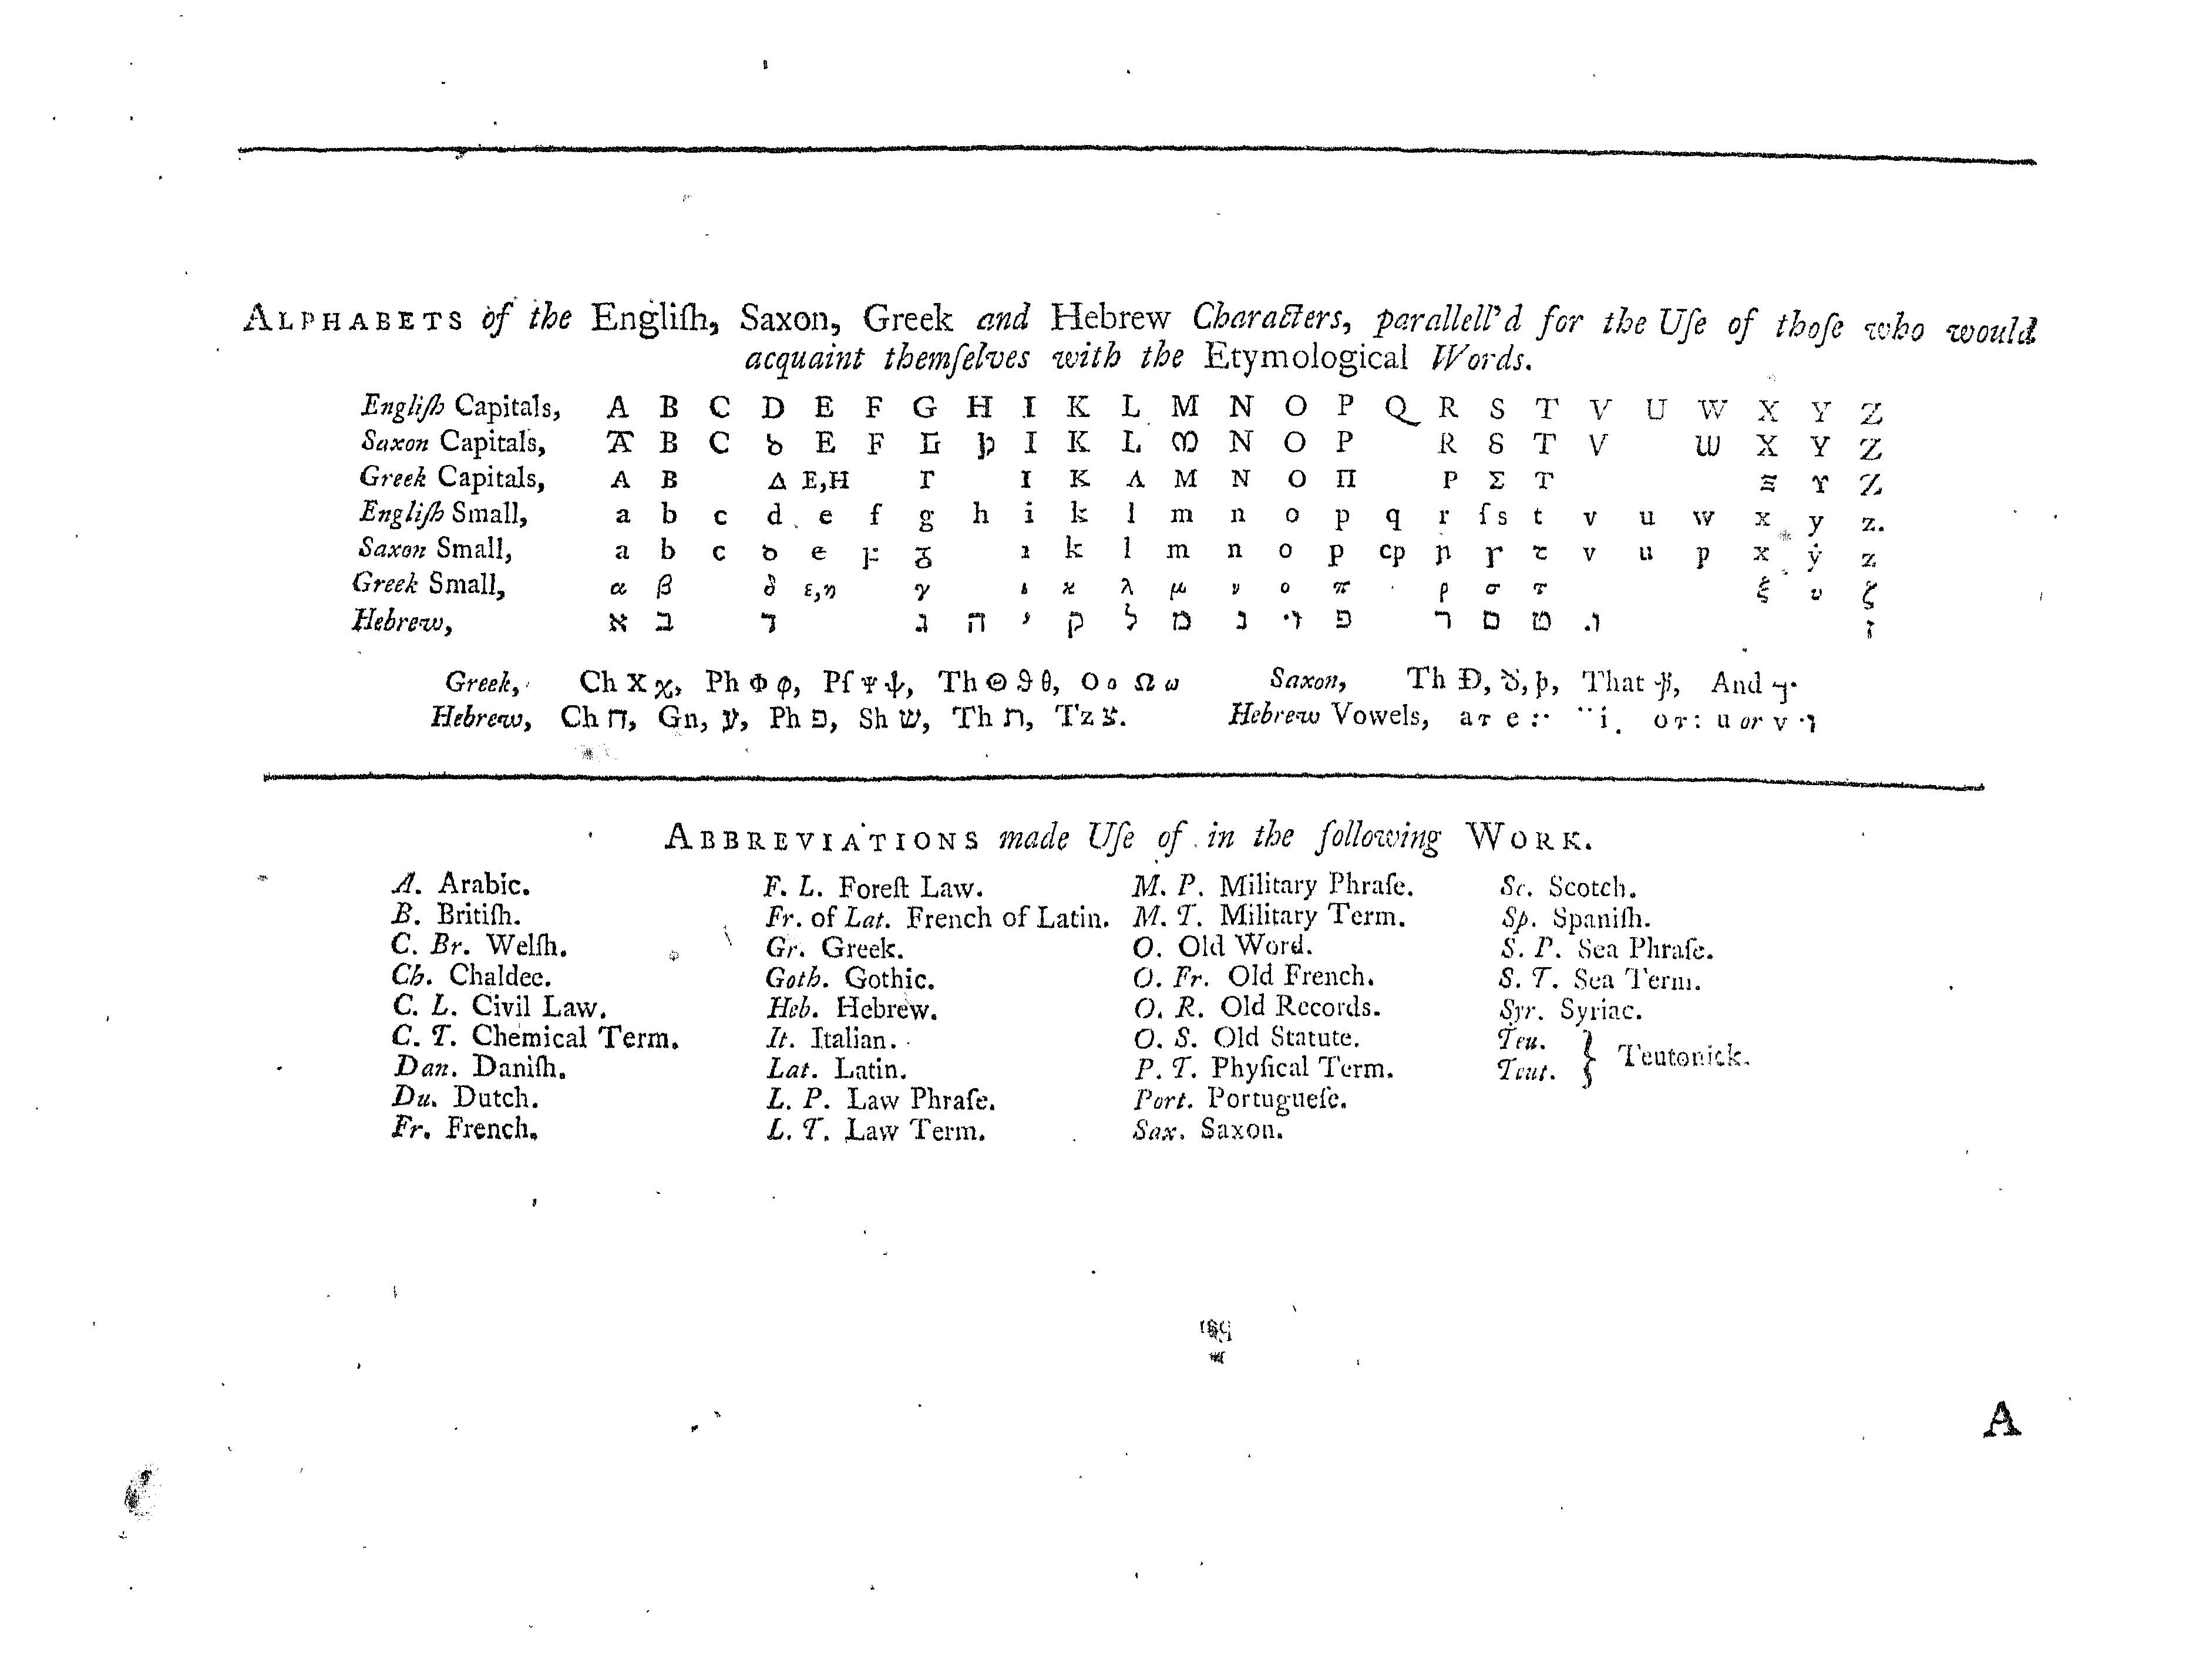 ALPHABETS of the Engliſh, Saxon, Greek and Hebrew Characters, parallell'd for the Uſe of thoſe who would
acquaint themſelves with the Etymological Words.
Engliſh Capitals, A B C D E F G H I K L M N O P Q R S T V U W X Y Z
Saxon Capitals, A B C Ꝺ E F G Þ I K L M N O P R S T V W X Y Z
Greek Capitals, Α Β Δ Ε,Η Γ Ι Κ Λ Μ Ν Ο Π Ρ Σ Τ Ξ ϒ Ζ
Engliſh Small, a b c d e f g h i k l m n o p q r ſs t v u w x y z.
Saxon Small, a b c ꝺ e ꝼ ᵹ ı k l m n o p cp ꞃ ꞅ ꞇ v u ƿ x ẏ z
Greek Small, α β δ ε,η γ ι κ λ μ ν ο π ρ σ τ ξ υ ζ
Hebrew, א ב ד ג ה י ק ל מ נ וֹ פ ר ס ט ו ז
Greek, Ch Χ χ, Ph Φ φ, Pſ Ψ ψ, Th Θ ϑ θ, Ο ο Ω ω Saxon, Th Ð, ð, þ, That ꝥ, And ⁊.
Hebrew, Ch ח, Gn, ע, Ph פ, Sh ש, Th ת, Tz צ. Hebrew Vowels, a e i o u or v
ABBREVIATIONS made Uſe of in the following WORK.
A. Arabic.
B. Britiſh.
C. Br. Welſh.
Ch. Chaldee.
C. L. Civil Law.
C. T. Chemical Term.
Dan. Daniſh.
Du. Dutch.
Fr. French.
F. L. Foreſt Law.
Fr. of Lat. French of Latin.
Gr. Greek.
Goth. Gothic.
Heb. Hebrew.
It. Italian.
Lat. Latin.
L. P. Law Phraſe.
L. T. Law Term.
M. P. Military Phraſe.
M. T. Military Term.
O. Old Word.
O. Fr. Old French.
O. R. Old Records.
O. S. Old Statute.
P. T. Phyſical Term.
Port. Portugueſe.
Sax. Saxon.
Sc. Scotch.
Sp. Spaniſh.
S. P. Sea Phraſe.
S. T. Sea Term.
Syr. Syriac.
Teu.
Teut. } Teutonick.
A